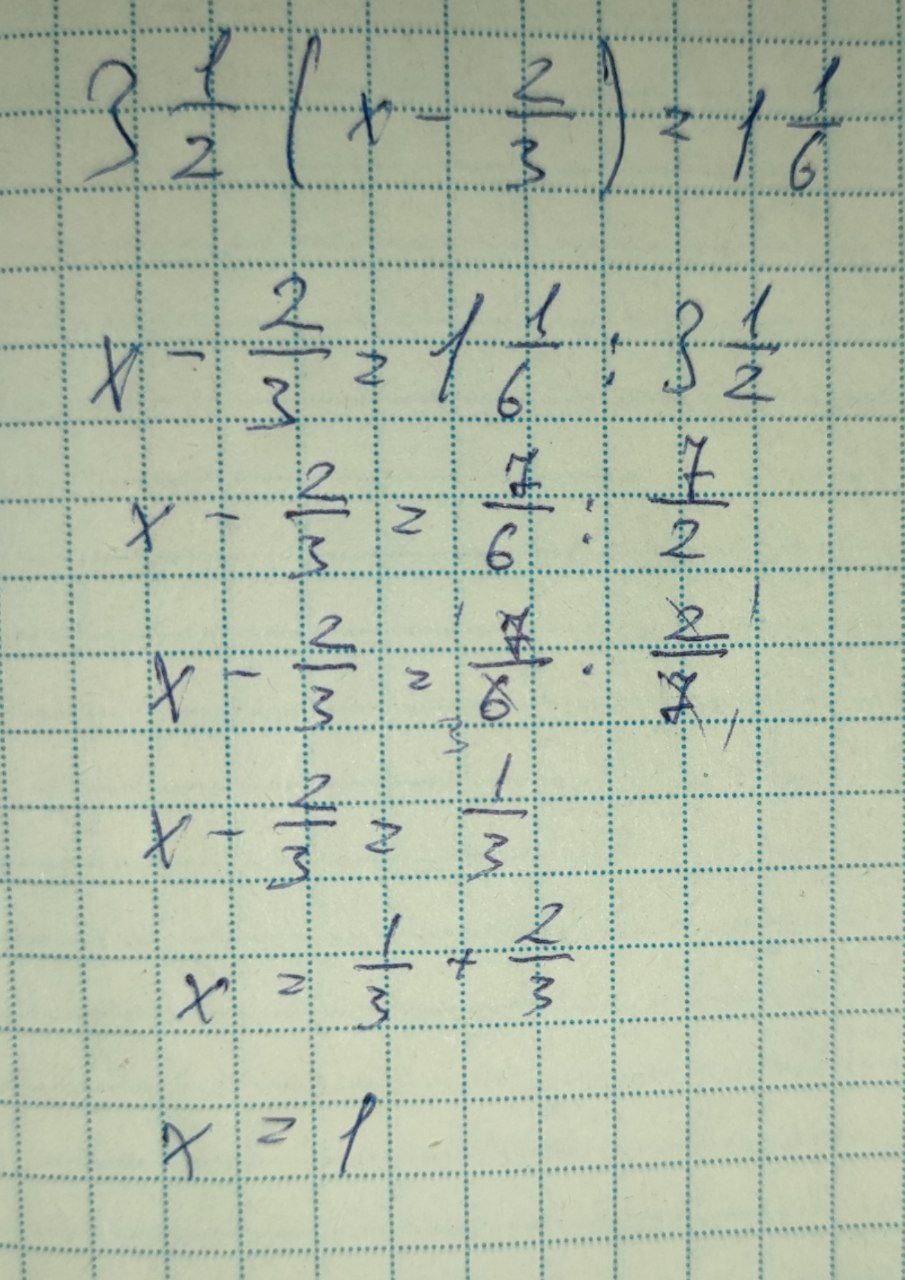 3 1/2 (x - 2/3) = 1 1/6
x - 2/3 = 1 1/6 : 3 1/2
x - 2/3 = 7/6 : 7/2
x - 2/3 = 1 7/6 3 · 2/7 1 1
x - 2/3 = 1/3
x = 1/3 + 2/3
x = 1